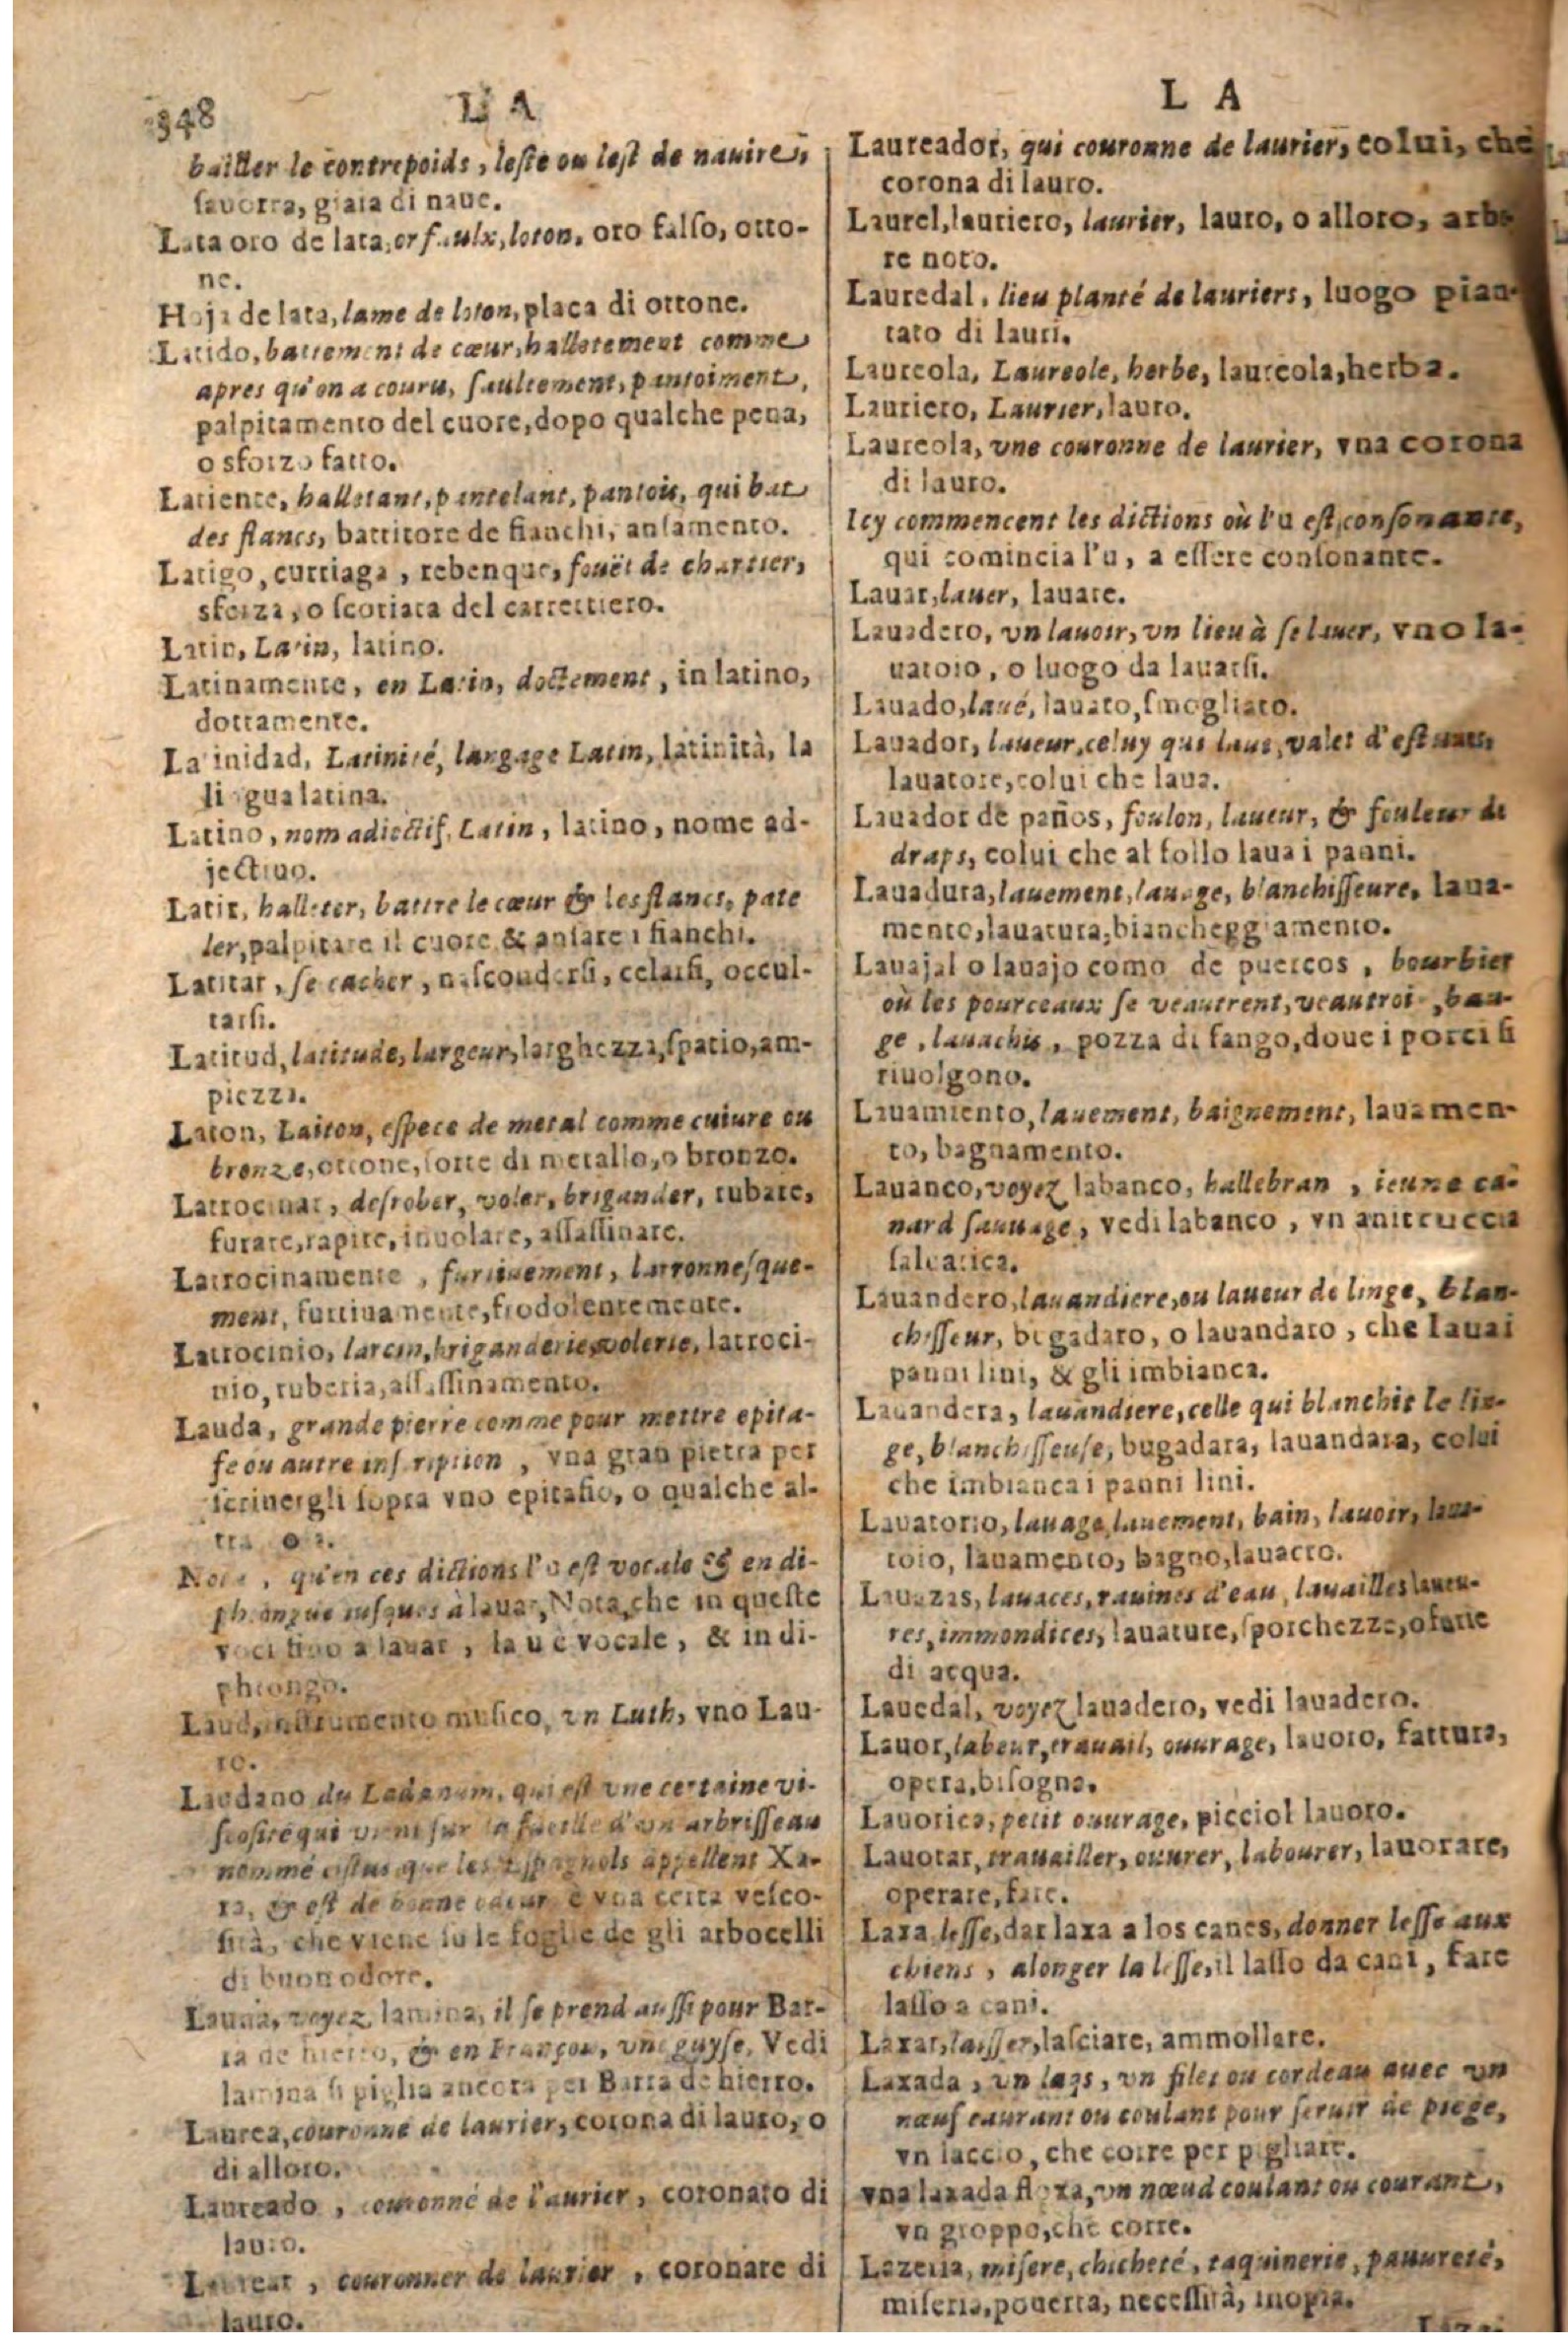 348
L A
bailler le contrepoids, leste ou lest de nauire,
sauorra, giaia di naue.
Lata oro de lata, or faulx, loton, oro falso, otto-
ne.
Hoja de lata, lame de loton, placa di ottone.
Latido, battement de cœur, halletement comme
apres qu'on a couru, saultement, pantoiment,
palpitamento del cuore, dopo qualche pena,
o sforzo fatto.
Latiente, halletant, pantelant, pantois, qui bat
des flancs, battitore de fianchi, ansamento.
Latigo, curriaga, rebenque, fouët de chartier,
sferza, o scoriata del carrettiero.
Latin, Latin, latino.
Latinamente, en Latin, doctement, in latino,
dottamente.
Latinidad, Latinité, langage Latin, latinità, la
lingua latina.
Latino, nom adiectif, Latin, latino, nome ad-
jectiuo.
Latir, halleter, battre le cœur & les flancs, pate
ler, palpitare il cuore & ansare i fianchi.
Latitar, se cacher, nascondersi, celarsi, occul-
tarsi.
Latitud, latitude, largeur, larghezza, spatio, am-
piezza.
Laton, Laiton, espece de metal comme cuiure ou
bronze, ottone, sorte di metallo, o bronzo.
Latrocinar, desrober, voler, brigander, rubare,
furare, rapire, inuolare, assassinare.
Latrocinamente, furtiuement, larronnesque-
ment, furtiuamente, frodolentemente.
Latrocinio, larcin, briganderie, volerie, latroci-
nio, ruberia, assassinamento.
Lauda, grande pierre comme pour mettre epita-
fe ou autre inscription, vna gran pietra per
scriuergli sopra vno epitafio, o qualche al-
tra
Nota, qu'en ces dictions l'u est vocale & en di-
phtongue iusques à lauar, Nota, che in queste
voci fino a lauar, la u è vocale, & in di-
phtongo.
Laud, instrumento musico, vn Luth, vno Lau-
to.
Laudano du Ladanum, qui est vne certaine vi-
scosité qui vient sur la fueille d'vn arbrisseau
nommé cistus que les Espagnols appellent Xa-
ra, & est de bonne odeur, è vna certa vesco-
sità, che viene su le foglie de gli arbocelli
di buon odore.
Launa, voyez lamina, il se prend aussi pour Bar-
ra de hierro, & en François, vne guyse, Vedi
lamina si piglia ancora per Barra de hierro.
Laurea, couronne de laurier, corona di lauro, o
di alloro.
Laureado, couronné de laurier, coronato di
lauro.
Laurear, couronner de laurier, coronare di
lauro.
L A
Laureador, qui couronne de laurier, colui, che
corona di lauro.
Laurel, lauriero, laurier, lauro, o alloro, arbo-
re noto.
Lauredal, lieu planté de lauriers, luogo pian-
tato di lauri.
Laureola, Laureole, herbe, laureola, herba.
Lauriero, Laurier, lauro.
Laureola, vne couronne de laurier, vna corona
di lauro.
Icy commencent les dictions où l'u est consonante,
qui comincia l'u, a essere consonante.
Lauar, lauer, lauare.
Lauadero, vn lauoir, vn lieu à se lauer, vno la-
uatoio, o luogo da lauarsi.
Lauado, laué, lauato, smogliato.
Lauador, laueur, celuy qui laue, valet d'estuues,
lauatore, colui che laua.
Lauador de paños, foulon, laueur, & fouleur de
draps, colui che al follo laua i panni.
Lauadura, lauement, lauage, blanchisseure, laua-
mento, lauatura, biancheggiamento.
Lauajal o lauajo como de puercos, bourbier
où les pourceaux se veautrent, veautroir, bau-
ge, lauachis, pozza di fango, doue i porci si
riuolgono.
Lauamiento, lauement, baignement, lauamen-
to, bagnamento.
Lauanco, voyez labanco, hallebran, ieune ca-
nard sauuage, vedi labanco, vn anitruccia
saluatica.
Lauandero, lauandiere, ou laueur de linge, blan-
chisseur, bugadaro, o lauandaro, che laua i
panni lini, & gli imbianca.
Lauandera, lauandiere, celle qui blanchit le lin-
ge, blanchisseuse, bugadara, lauandara, colui
che imbianca i panni lini.
Lauatorio, lauage, lauement, bain, lauoir, laua-
toio, lauamento, bagno, lauacro.
Lauazas, lauaces, rauines d'eau, lauailles laueu-
res, immondices, lauature, sporchezze, o furie
di acqua.
Lauedal, voyez lauadero, vedi lauadero.
Lauor, labeur, trauail, ouurage, lauoro, fattura,
opera, bisogna.
Lauorica, petit ouurage, picciol lauoro.
Lauorar, trauailler, ouurer, labourer, lauorare,
operare, fare.
Laxa lesse, dar laxa a los canes, donner lesse aux
chiens, alonger la lesse, il lasso da cani, fare
lasso a cani.
Laxar, laisser, lasciare, ammollare.
Laxada, vn laqs, vn filet ou cordeau auec vn
nœuf courant ou coulant pour seruir de piege,
vn laccio, che corre per pigliare.
vna laxada floxa, vn nœud coulant ou courant,
vn groppo, che corre.
Lazeria, misere, chicheté, taquinerie, pauureté,
miseria, pouerta, necessità, inopia.